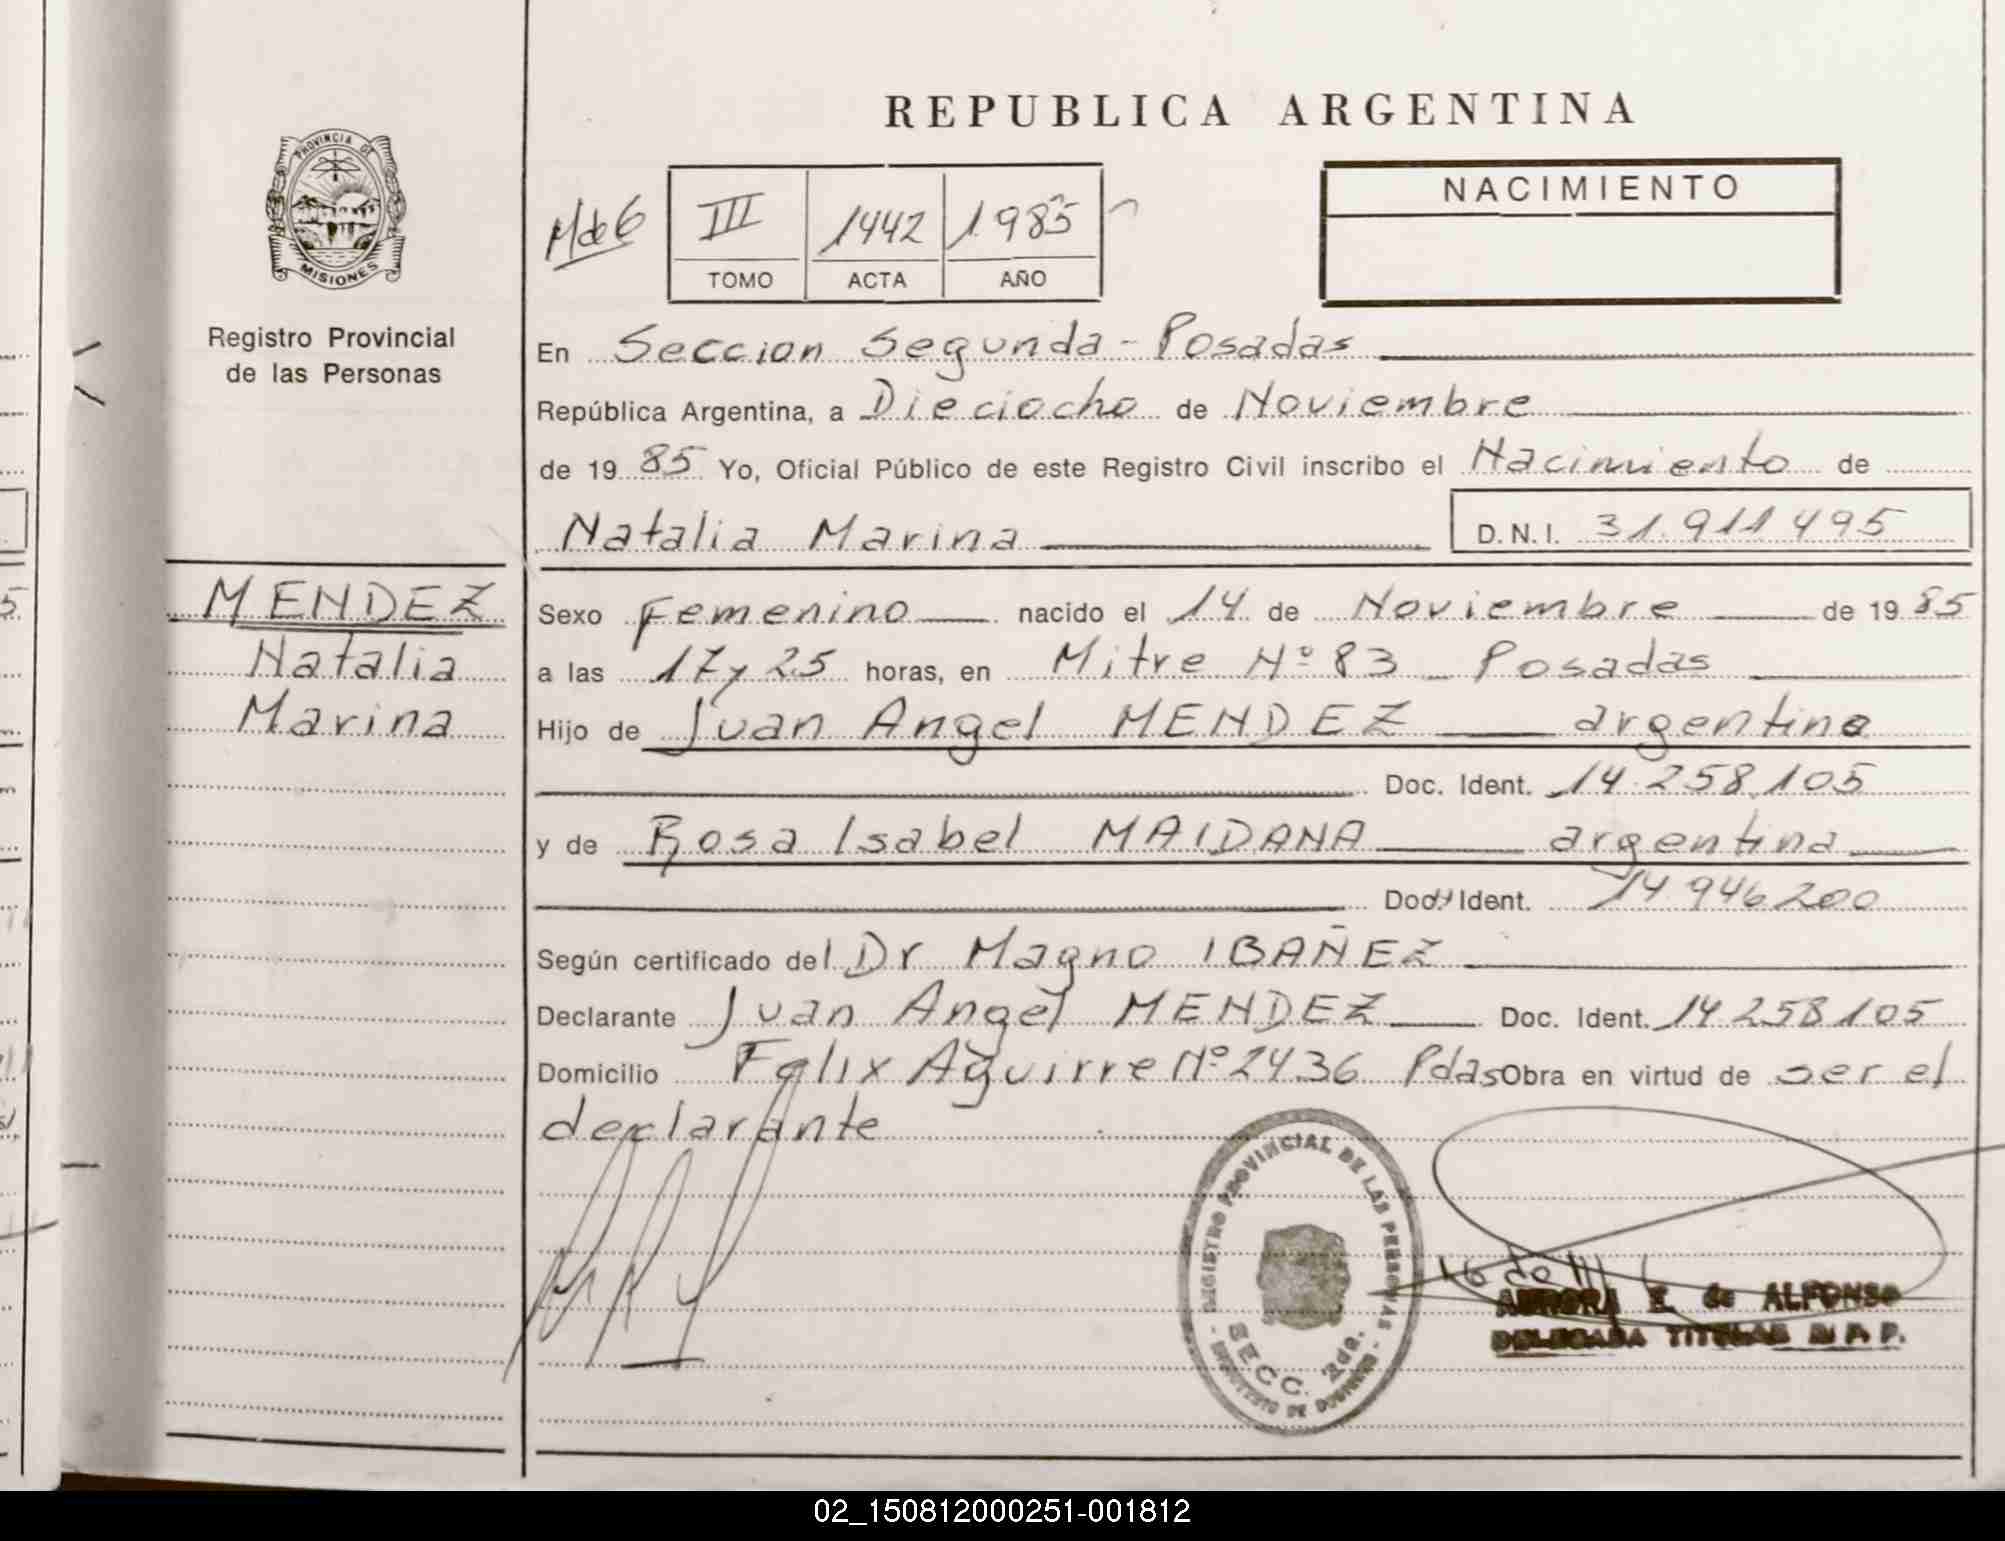 REPUBLICA ARGENTINA
PROVINCIA DE
MISIONES
Registro Provincial
de las Personas
MENDEZ
Natalia
Marina
III 1442 1985
TOMO ACTA AÑO
NACIMIENTO
En Seccion Segunda - Posadas
República Argentina, a Dieciocho de Noviembre
de 19 85 Yo, Oficial Público de este Registro Civil inscribo el Nacimiento de
Natalia Marina D.N.I. 31.911495
Sexo Femenino nacido el 14 de Noviembre de 19 85
a las 17 y 25 horas, en Mitre Nº 83 Posadas
Hijo de Juan Angel MENDEZ argentino
Doc. Ident. 14.258.105
y de Rosa Isabel MAIDANA argentina
Doc. Ident. 14.946.200
Según certificado del Dr Magno IBAÑEZ
Declarante Juan Angel MENDEZ Doc. Ident. 14 258 105
Domicilio Felix Aguirre Nº 2436 Pdas Obra en virtud de ser el
declarante
REGISTRO PROVINCIAL DE LAS PERSONAS
SECC. 2da.
AURORA E. de ALFONSO
DELEGADA TITULAR R. P. P.
02_150812000251-001812